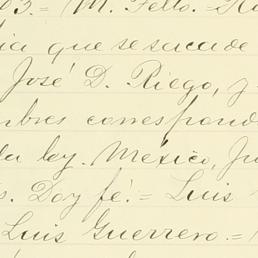 03.= M. Fello.=
cia que se saca de
José D. Riego, y
mbres correspond
la ley. México, Ju
s. Doy fé.= Luis
Luis Guerrero.=